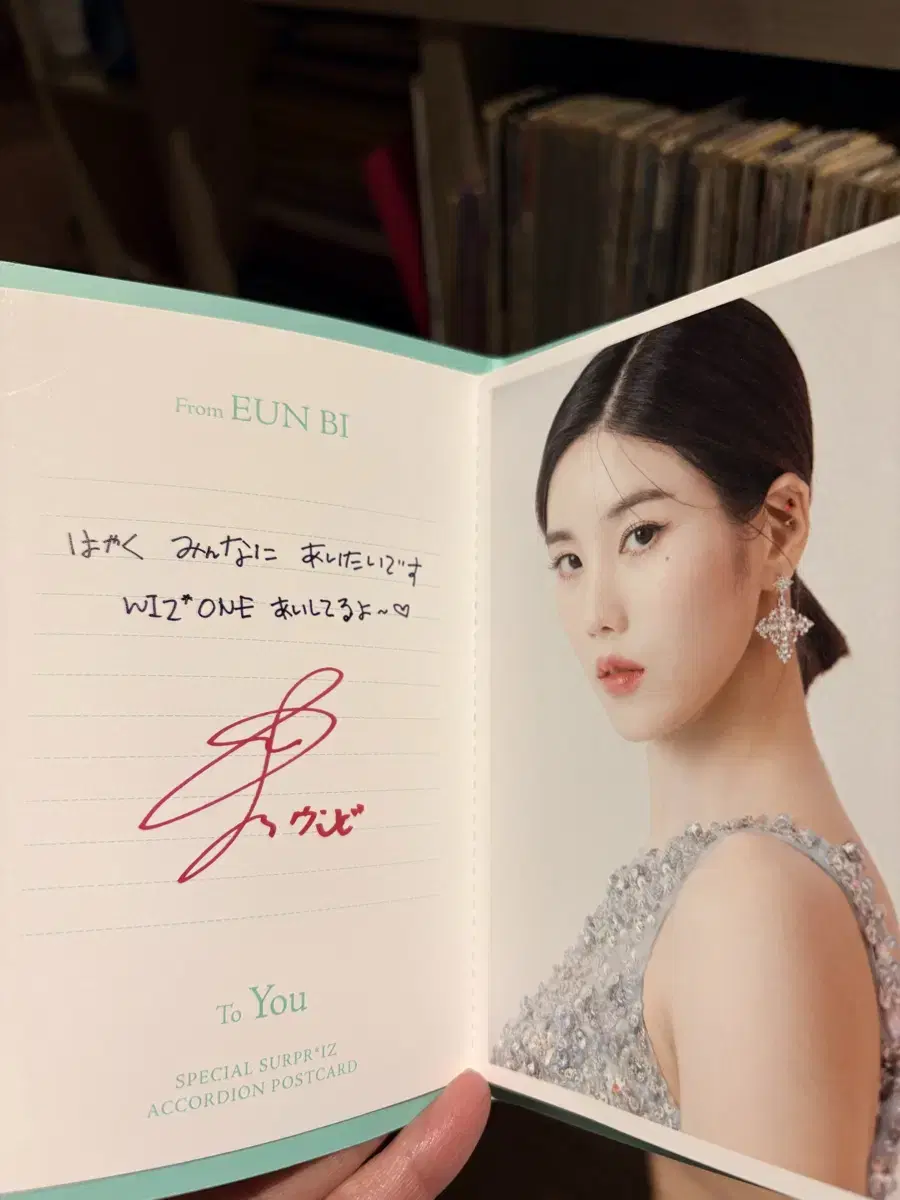 From EUN BI
はやく みんなに あいたいです
WIZ*ONE あいしてるよ~♡
ウンビ
To You
SPECIAL SURPR*IZ
ACCORDION POSTCARD